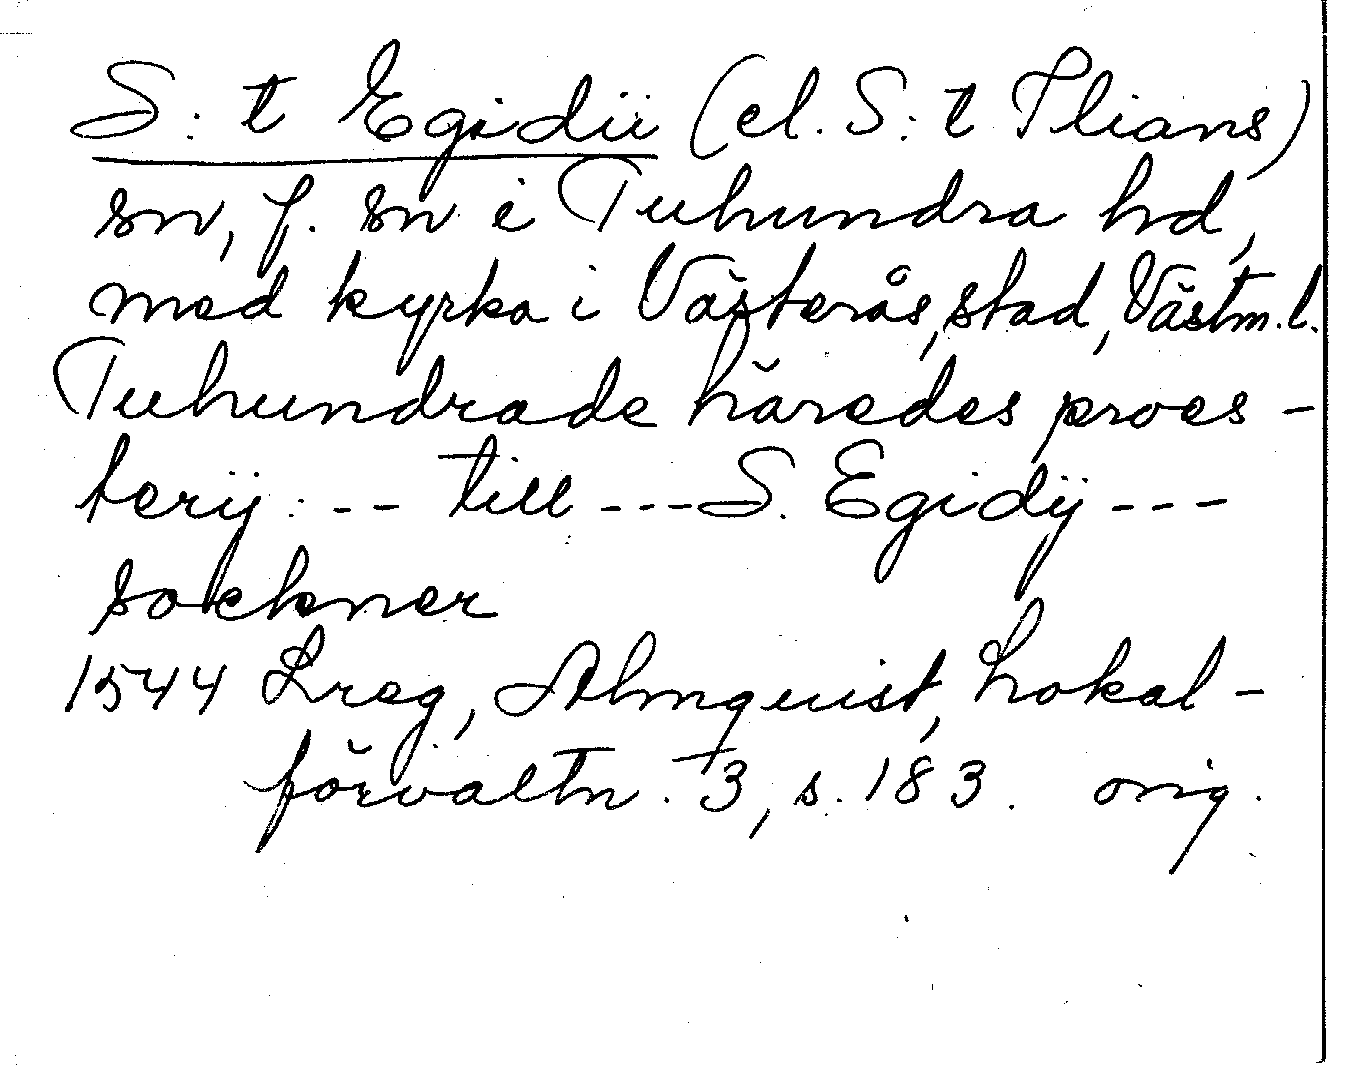 S:t Egidii (el. S:t Ilians)
sn, f. sn i Tuhundra hd,
med kyrka i Västerås, stad, Västm.l.
Tuhundrade häredes proes-
terij: -- till --- S. Egidij ---
sockner
1544 Lreg, Almquist, Lokal-
förvaltn. 3, s. 183. orig.